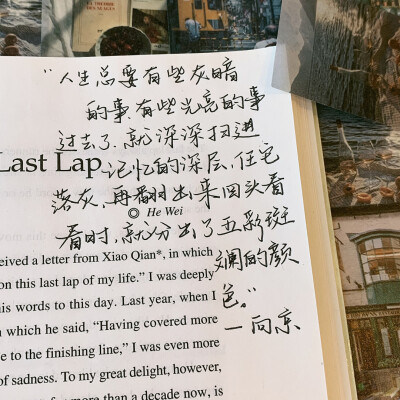 “人生总要有些灰暗
的事,有些光亮的事
过去了,就深深扫进
Last Lap
记忆的深层,任它
落灰,再翻出来回头看
◎ He Wei
看时,就分出了五彩斑
斓的颜
色。”
—向京
eived a letter from Xiao Qian*, in which
on this last lap of my life.” I was deeply
is words to this day. Last year, when I
n which he said, “Having covered more
e to the finishing line,” I was even more
of sadness. To my great delight, however,
for more than a decade now, is